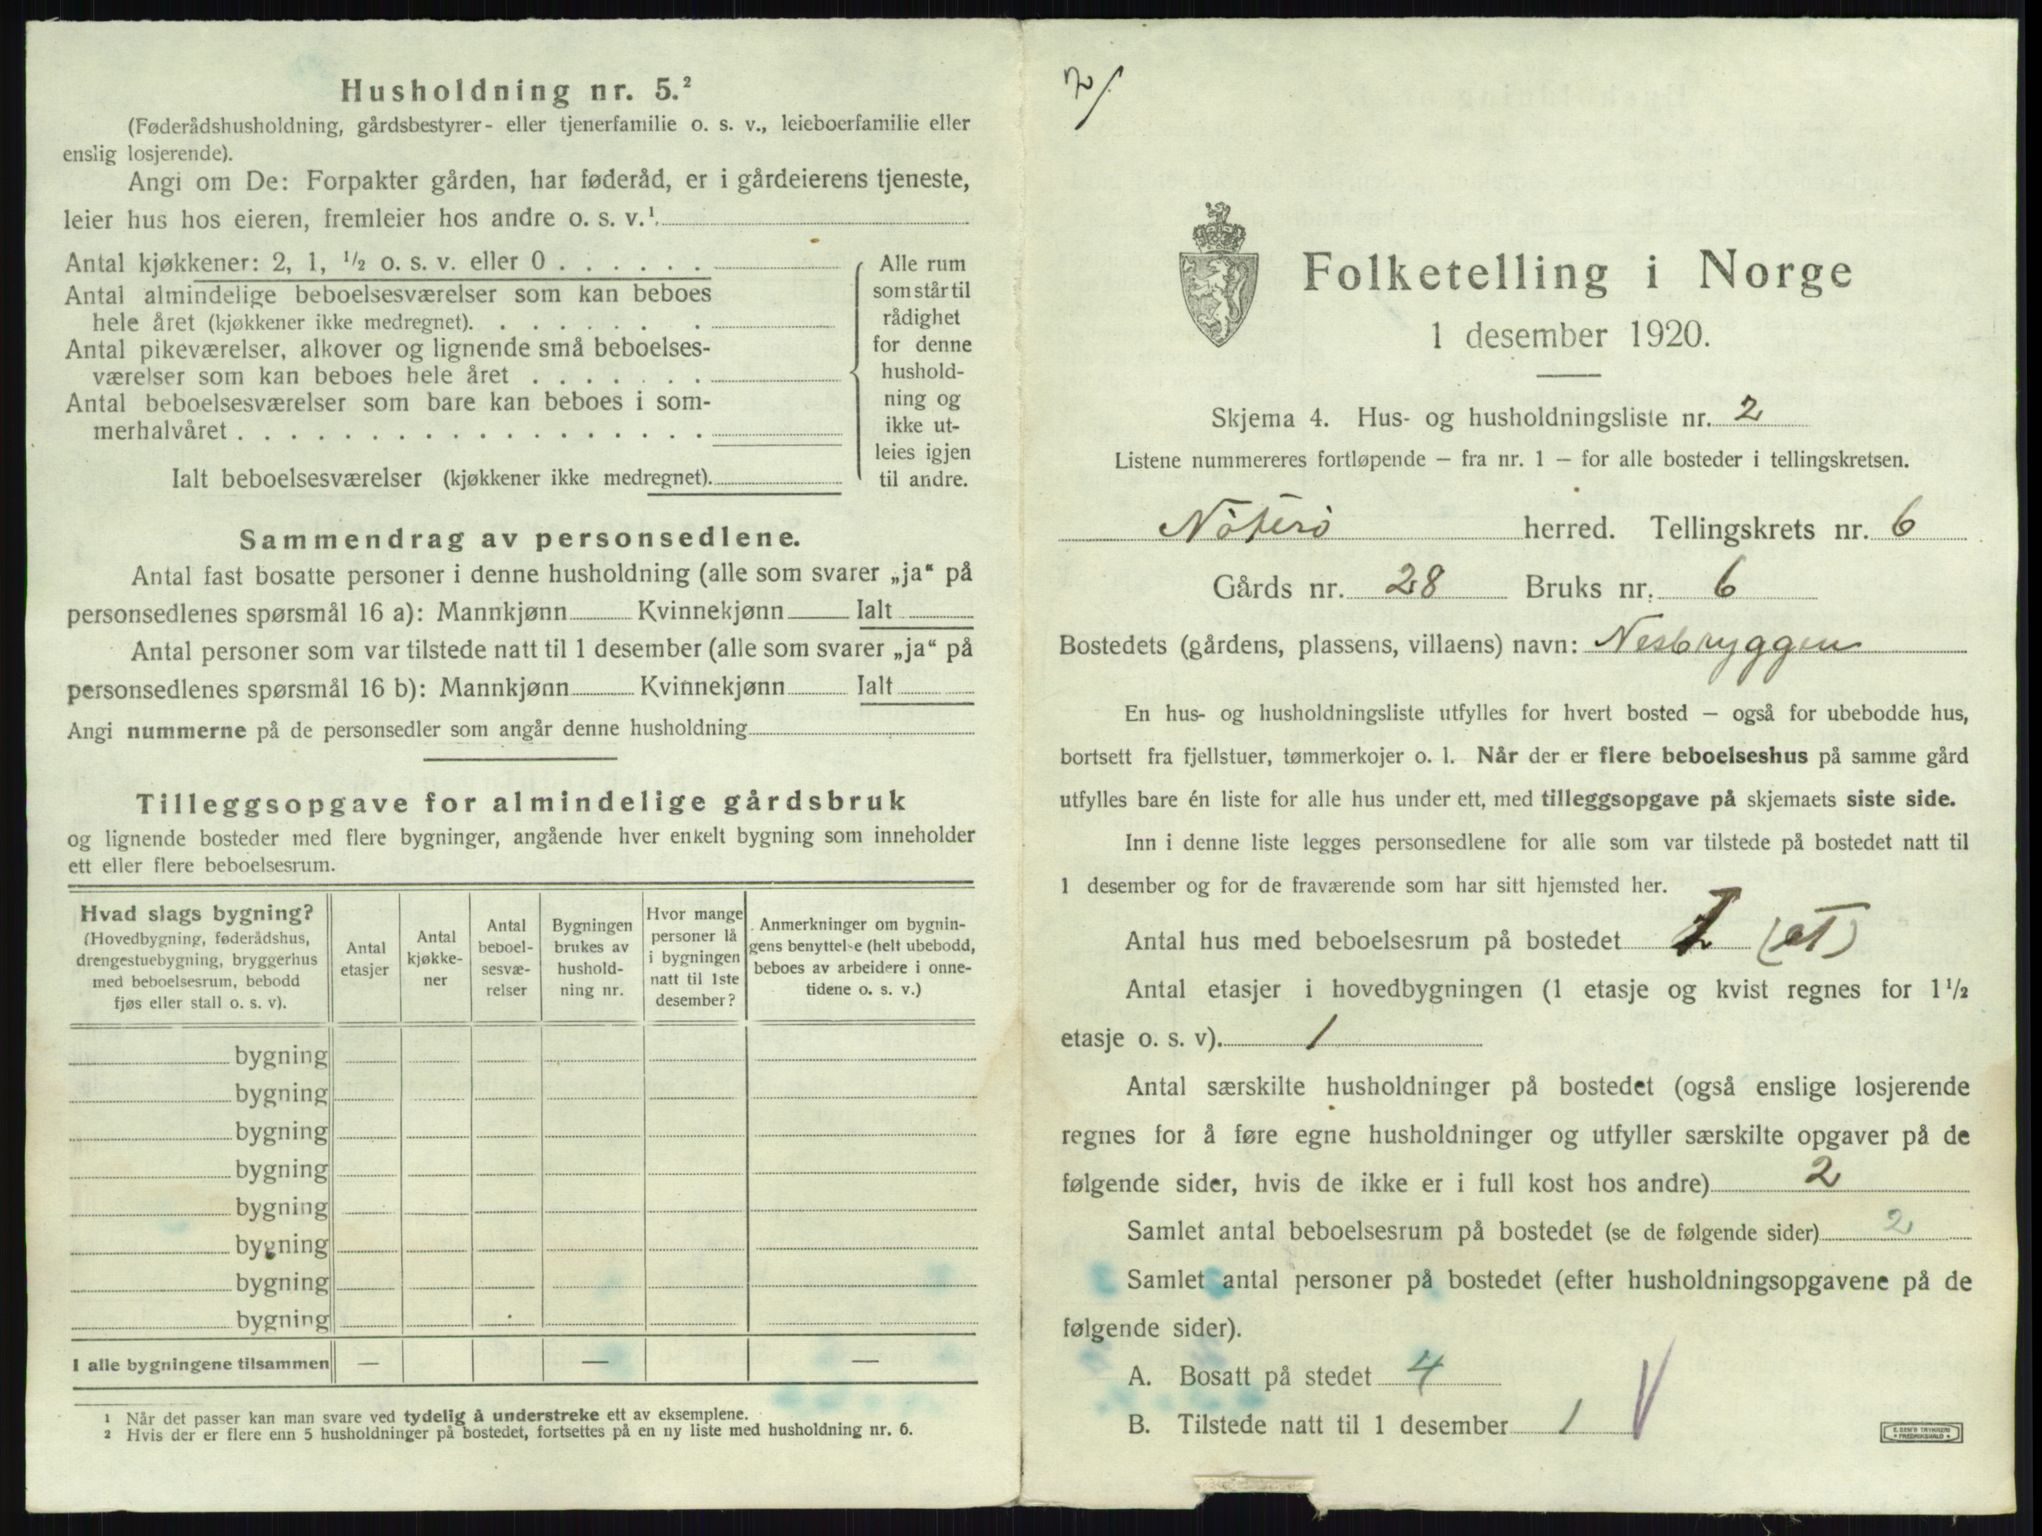 Husholdning nr. 5.²
(Føderådshusholdning, gårdsbestyrer- eller tjenerfamilie o. s. v., leieboerfamilie eller
enslig losjerende).
Angi om De: Forpakter gården, har føderåd, er i gårdeierens tjeneste,
leier hus hos eieren, fremleier hos andre o. s. v.¹
Antal kjøkkener: 2, 1, ½ o. s. v. eller 0
Antal almindelige beboelsesværelser som kan beboes
hele året (kjøkkener ikke medregnet).
Antal pikeværelser, alkover og lignende små beboelses-
værelser som kan beboes hele året
Antal beboelsesværelser som bare kan beboes i som-
merhalvåret
Ialt beboelsesværelser (kjøkkener ikke medregnet).
Alle rum
som står til
rådighet
for denne
hushold-
ning og
ikke ut-
leies igjen
til andre.
Sammendrag av personsedlene.
Antal fast bosatte personer i denne husholdning (alle som svarer „ja“ på
personsedlenes spørsmål 16 a): Mannkjønn Kvinnekjønn Ialt
Antal personer som var tilstede natt til 1 desember (alle som svarer „ja“ på
personsedlenes spørsmål 16 b): Mannkjønn Kvinnekjønn Ialt
Angi nummerne på de personsedler som angår denne husholdning
Tilleggsopgave for almindelige gårdsbruk
og lignende bosteder med flere bygninger, angående hver enkelt bygning som inneholder
ett eller flere beboelsesrum.
Hvad slags bygning?
(Hovedbygning, føderådshus,
drengestuebygning, bryggerhus
med beboelsesrum, bebodd
fjøs eller stall o. s. v).
Antal
etasjer
Antal
kjøkke-
ner
Antal
beboel-
sesvæ-
relser
Bygningen
brukes av
hushold-
ning nr.
Hvor mange
personer lå
i bygningen
natt til 1ste
desember?
Anmerkninger om bygnin-
gens benyttelse (helt ubebodd,
beboes av arbeidere i onne-
tidene o. s. v.)
bygning
bygning
bygning
bygning
bygning
bygning
bygning
bygning
I alle bygningene tilsammen — — —
1 Når det passer kan man svare ved tydelig å understreke ett av eksemplene.
2 Hvis der er flere enn 5 husholdninger på bostedet, fortsettes på en ny liste med husholdning nr. 6.
2/
Folketelling i Norge
1 desember 1920.
Skjema 4. Hus- og husholdningsliste nr. 2
Listene nummereres fortløpende – fra nr. 1 – for alle bosteder i tellingskretsen.
Nøterø herred. Tellingskrets nr. 6
Gårds nr. 28 Bruks nr. 6
Bostedets (gårdens, plassens, villaens) navn: Nesbryggen
En hus- og husholdningsliste utfylles for hvert bosted – også for ubebodde hus,
bortsett fra fjellstuer, tømmerkojer o. l. Når der er flere beboelseshus på samme gård
utfylles bare én liste for alle hus under ett, med tilleggsopgave på skjemaets siste side.
Inn i denne liste legges personsedlene for alle som var tilstede på bostedet natt til
1 desember og for de fraværende som har sitt hjemsted her.
Antal hus med beboelsesrum på bostedet 1 (et)
Antal etasjer i hovedbygningen (1 etasje og kvist regnes for 1½
etasje o. s. v). 1
Antal særskilte husholdninger på bostedet (også enslige losjerende
regnes for å føre egne husholdninger og utfyller særskilte opgaver på de
følgende sider, hvis de ikke er i full kost hos andre) 2
Samlet antal beboelsesrum på bostedet (se de følgende sider) 2
Samlet antal personer på bostedet (efter husholdningsopgavene på de
følgende sider).
A. Bosatt på stedet 4
B. Tilstede natt til 1 desember 1